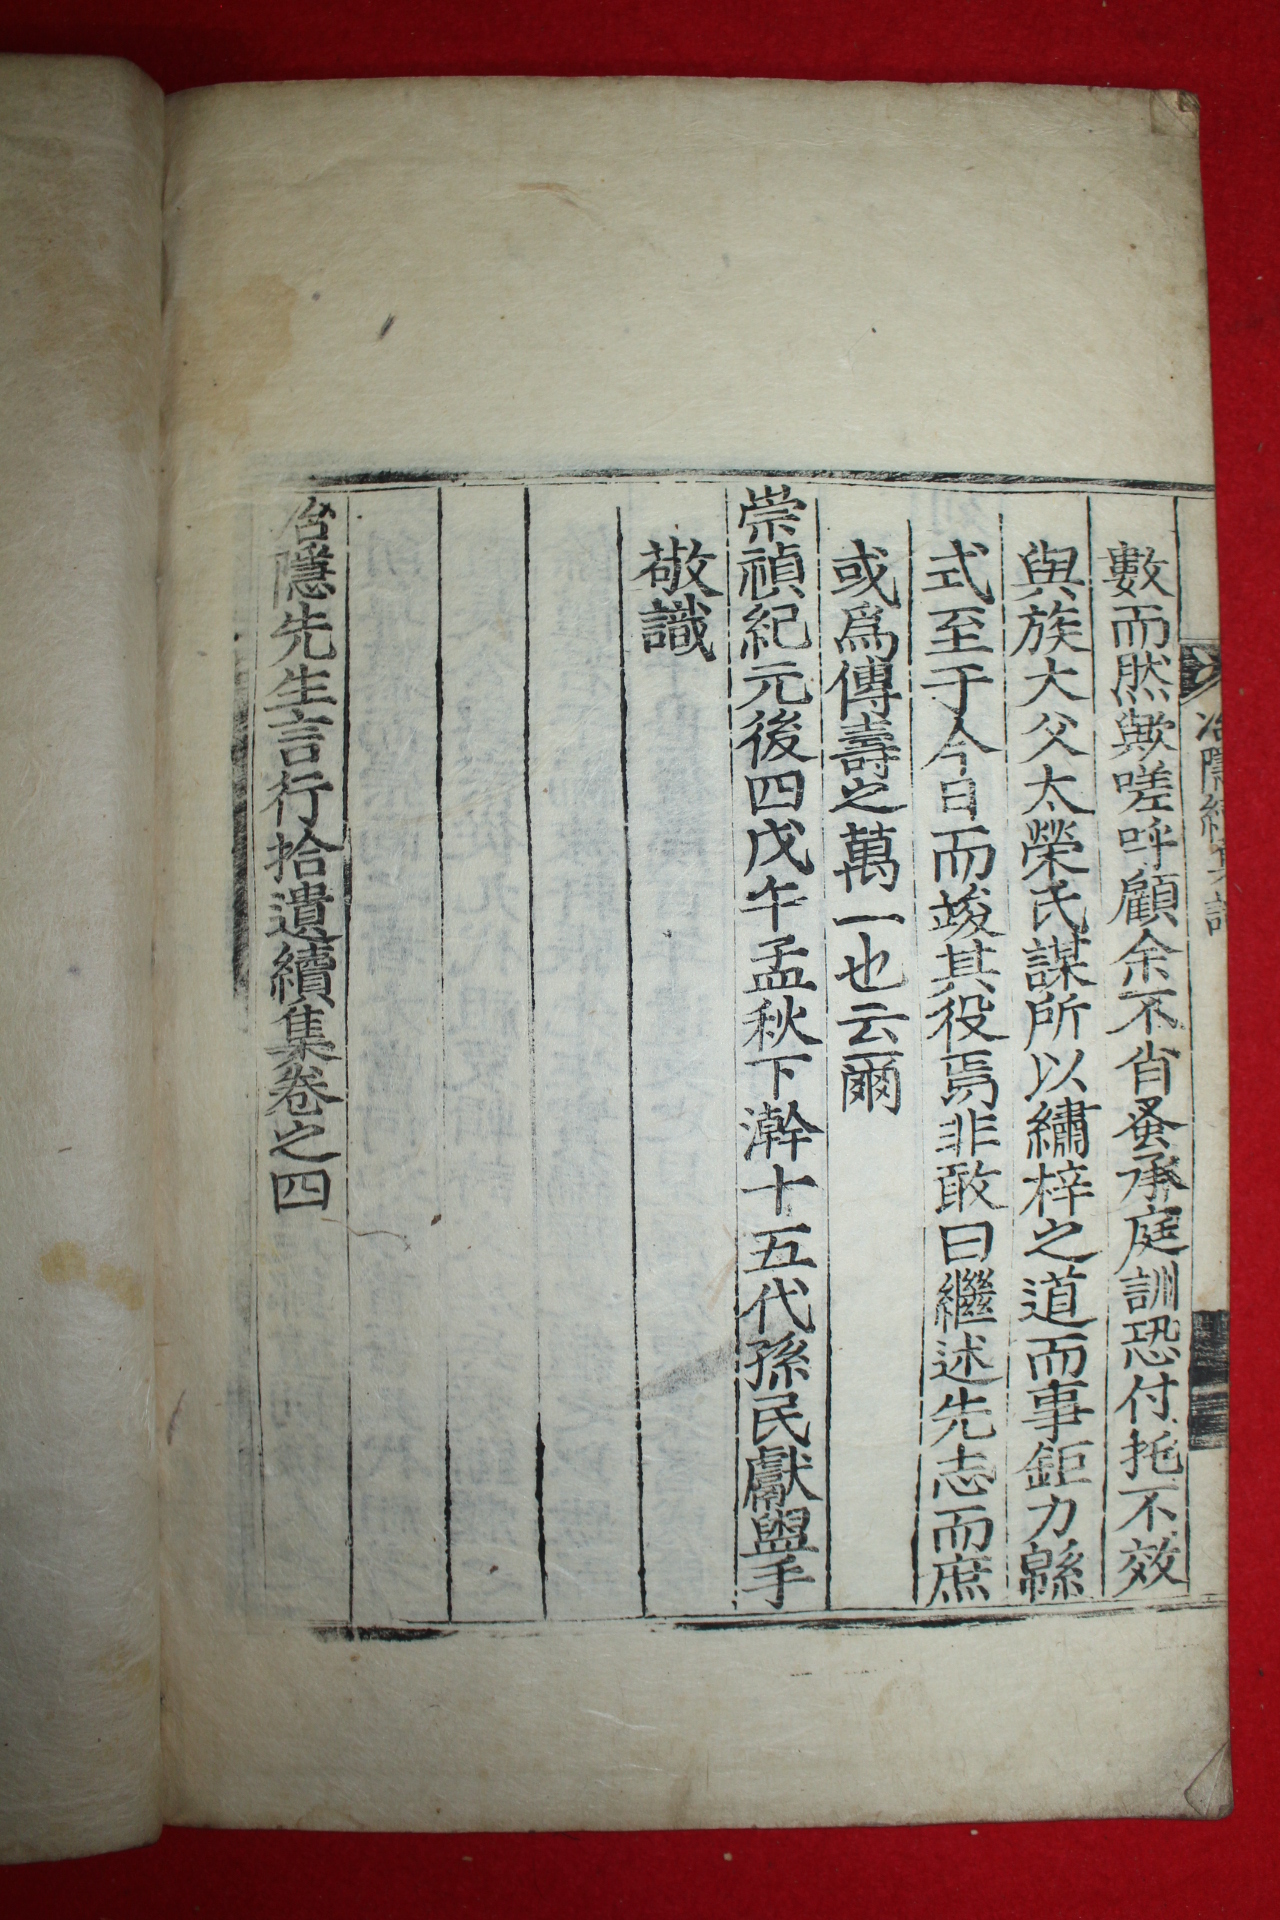 數而然歟嗟呼顧余不省蚤承庭訓恐付托不效
與族大父太榮氏謀所以繡梓之道而事鉅力緜
式至于今日而竣其役焉非敢曰繼述先志而庶
或爲傳壽之萬一也云爾
崇禎紀元後四戊午孟秋下澣十五代孫民獻盥手
敬識
冶隱先生言行拾遺續集卷之四